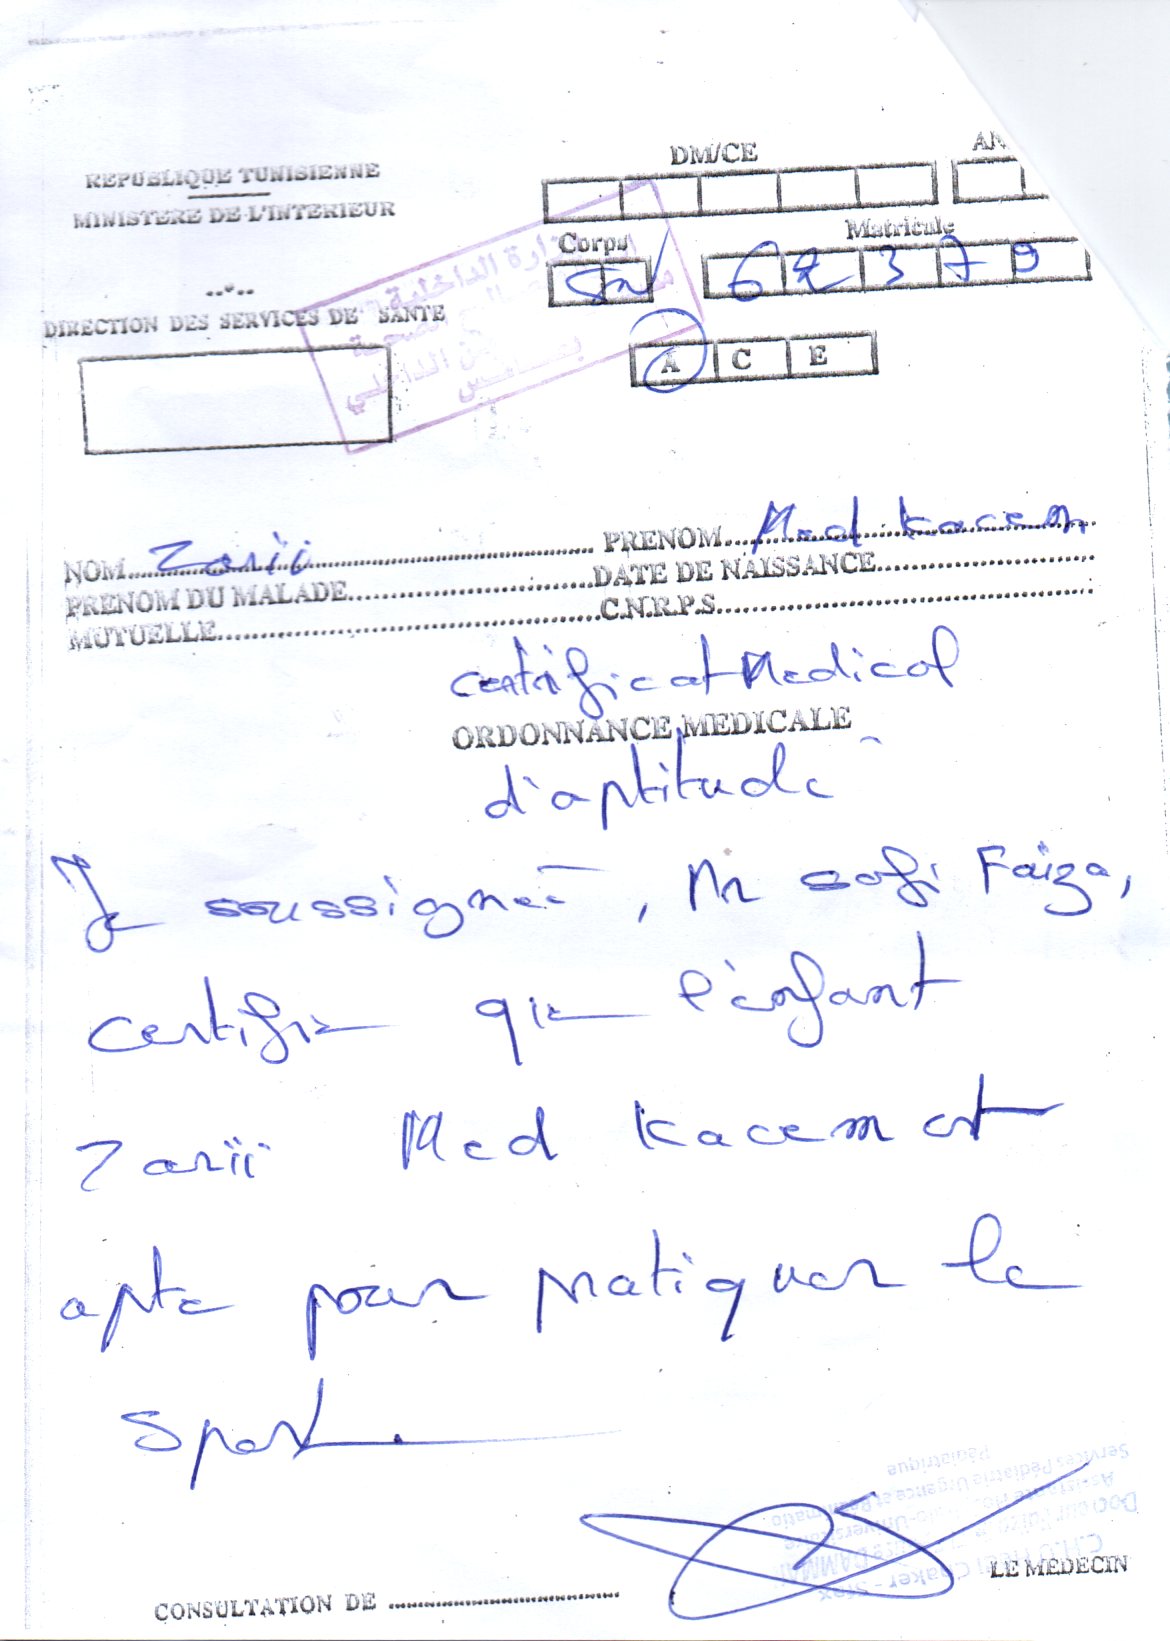 REPUBLIQUE TUNISIENNE
MINISTERE DE L'INTERIEUR
DIRECTION DES SERVICES DE SANTE
DM/CE
AN
Corps
Matricule
6 2 3 7 9
A C E
وزارة الداخلية
NOM Zarii PRENOM Med Kacem
PRENOM DU MALADE DATE DE NAISSANCE
MUTUELLE C.N.R.P.S
Certificat Medical
ORDONNANCE MEDICALE
d'aptitude
Je soussignée, Dr Safi Faiza,
certifie que l'enfant
Zarii Med Kacem est
apte pour pratiquer le
Sport.
Pédiatrique
Services Pédiatrie Urgence et
CONSULTATION DE
LE MEDECIN